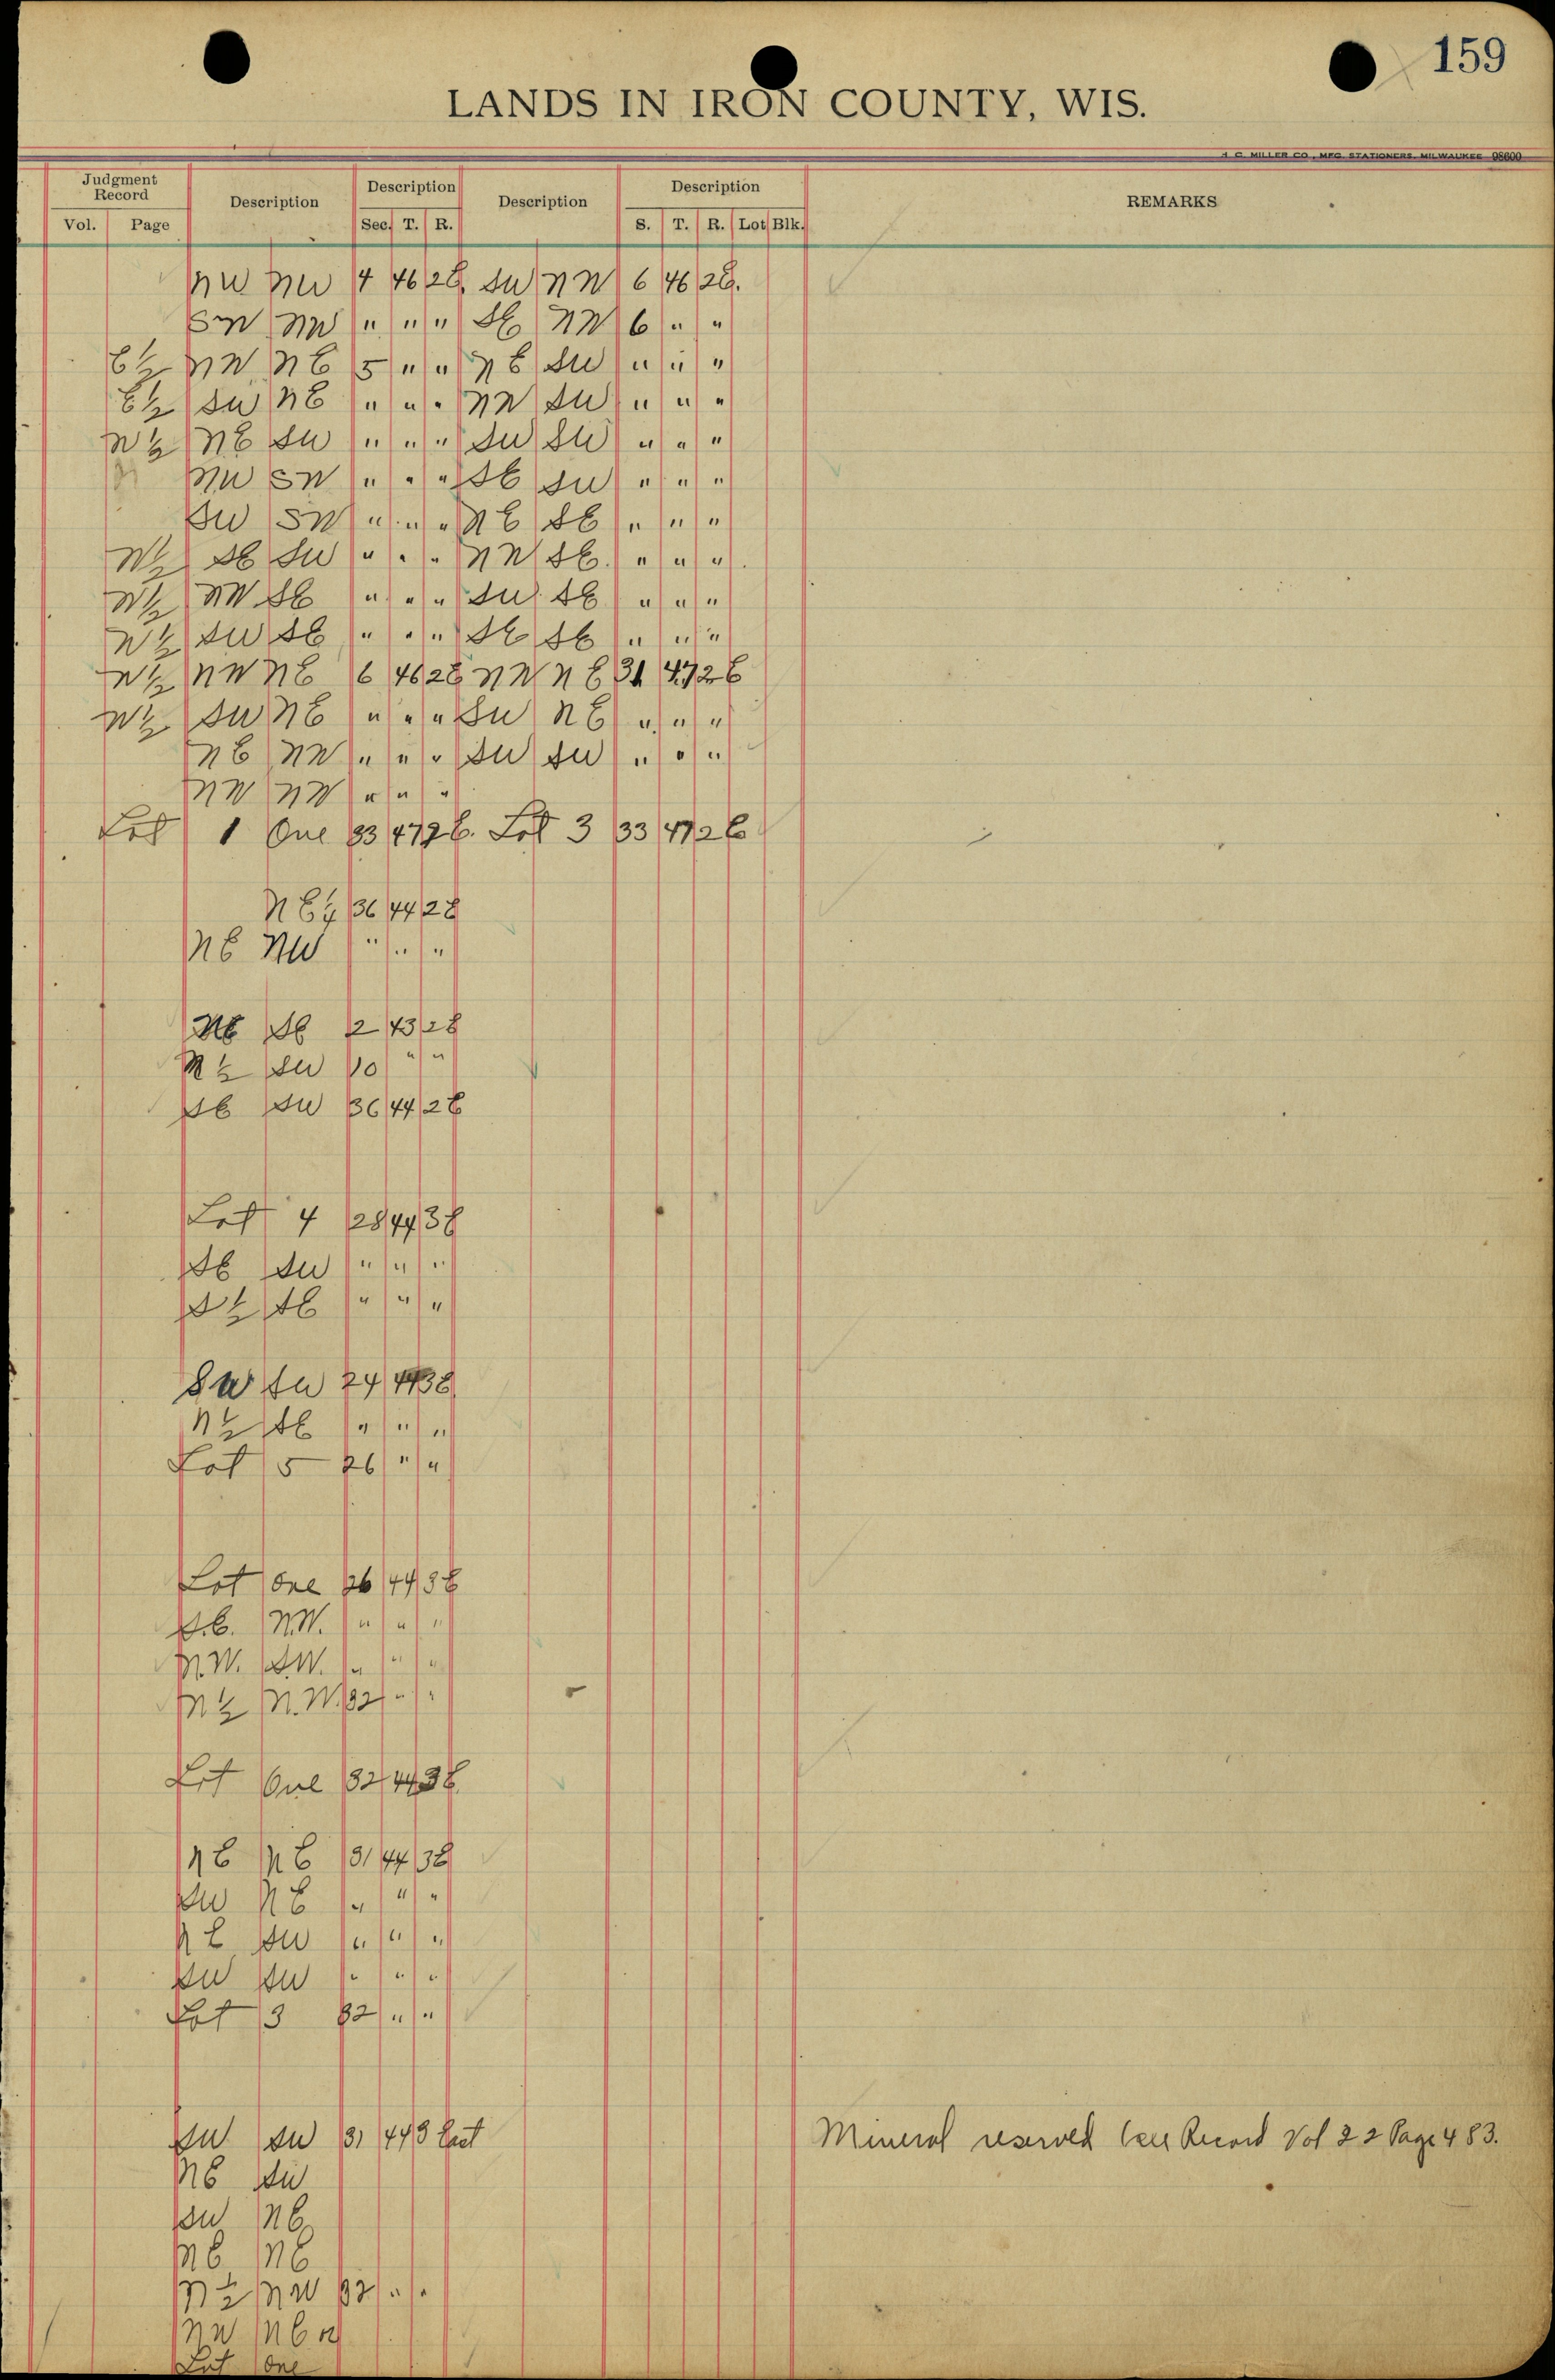 159
LANDS IN IRON COUNTY, WIS.
H. C. MILLER CO., MFG. STATIONERS, MILWAUKEE 98600
Judgment Record Description Description Description Description REMARKS
Vol. Page Sec. T. R. S. T. R. Lot Blk.
NW NW 4 46 2E. SW NW 6 46 2E.
SW NW " " " SE NW 6 " "
E½ NW NE 5 " " NE SW " " "
E½ SW NE " " " NW SW " " "
W½ NE SW " " " SW SW " " "
NW SW " " " SE SW " " "
SW SW " " " NE SE " " "
W½ SE SW " " " NW SE. " " "
W½ NW SE " " " SW SE " " "
W½ SW SE " " " SE SE " " "
W½ NW NE 6 46 2E NW NE 31 47 2E
W½ SW NE " " " SW NE " " "
NE NW " " " SW SW " " "
NW NW " " "
Lot 1 One 33 47 2E. Lot 3 33 47 2E
NE¼ 36 44 2E
NE NW " " "
NE SE 2 43 2E
N½ SW 10 " "
SE SW 36 44 2E
Lot 4 28 44 3E
SE SW " " "
S½ SE " " "
SW SW 24 44 3E
N½ SE " " "
Lot 5 26 " "
Lot One 26 44 3E
S.E. N.W. " " "
N.W. S.W. " " "
N½ N.W. 32 " "
Lot One 32 44 3E
NE NE 31 44 3E
SW NE " " "
NE SW " " "
SW SW " " "
Lot 3 32 " "
SW SW 31 44 3 East Mineral reserved (see Record Vol 22 Page 483.
NE SW
SW NE
NE NE
N½ NW 32 " "
NW NE or
Lot One